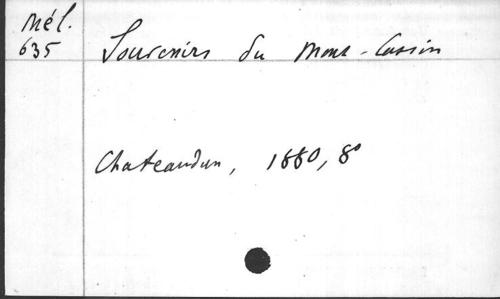 Mél.
635
Souvenirs du Mont-Cassin
Chateaudun, 1880, 8°